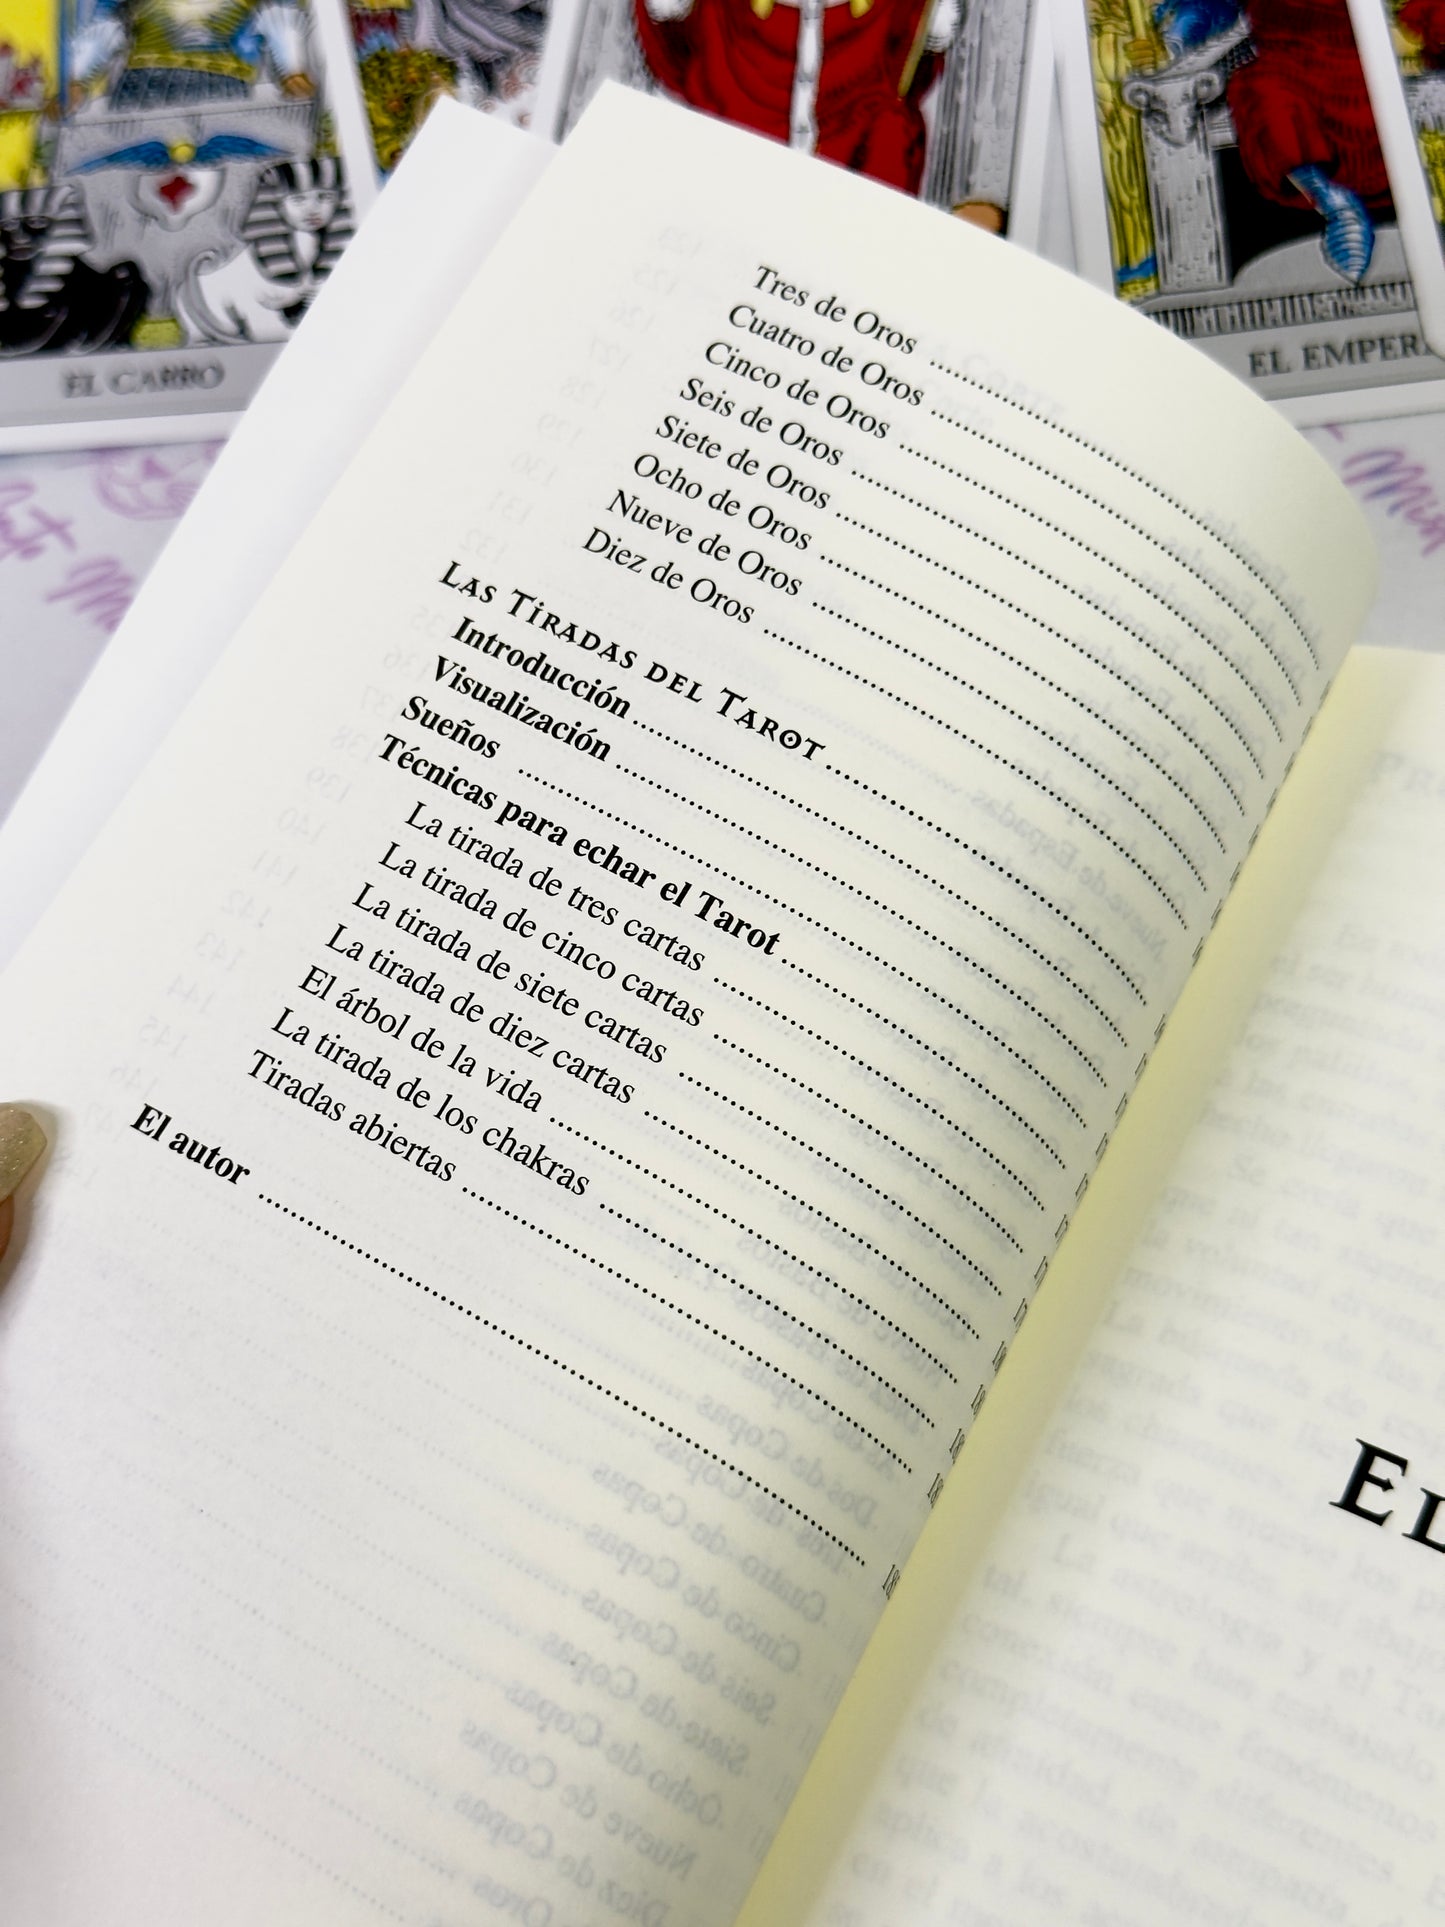 EL CARRO
EL EMPER
Tres de Oros
Cuatro de Oros
Cinco de Oros
Seis de Oros
Siete de Oros
Ocho de Oros
Nueve de Oros
Diez de Oros
LAS TIRADAS DEL TAROT
Introducción
Visualización
Sueños
Técnicas para echar el Tarot
La tirada de tres cartas
La tirada de cinco cartas
La tirada de siete cartas
La tirada de diez cartas
El árbol de la vida
La tirada de los chakras
Tiradas abiertas
El autor
EL